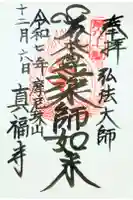 奉拝
弘法大師
本尊薬師如来
令和七年
十二月六日
摩尼珠山
真福寺